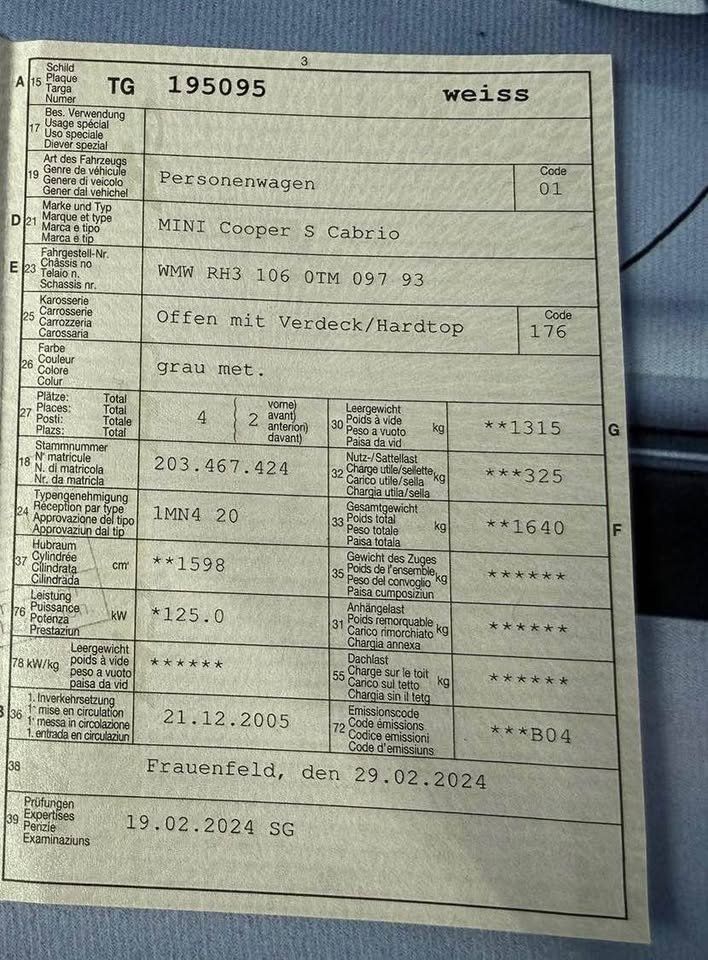 3
A 15 Schild
Plaque
Targa
Numer
TG 195095 weiss
17 Bes. Verwendung
Usage spécial
Uso speciale
Diever spezial
19 Art des Fahrzeugs
Genre de véhicule
Genere di veicolo
Gener dal vehichel
Personenwagen
Code
01
D 21 Marke und Typ
Marque et type
Marca e tipo
Marca e tip
MINI Cooper S Cabrio
E 23 Fahrgestell-Nr.
Châssis no
Telaio n.
Schassis nr.
WMW RH3 106 0TM 097 93
25 Karosserie
Carrosserie
Carrozzeria
Carossaria
Offen mit Verdeck/Hardtop
Code
176
26 Farbe
Couleur
Colore
Colur
grau met.
27 Plätze: Total
Places: Total
Posti: Totale
Plazs: Total
4 2 vorne)
avant)
anteriori)
davant)
30 Leergewicht
Poids à vide
Peso a vuoto
Paisa da vid
kg **1315 G
18 Stammnummer
N° matricule
N. di matricola
Nr. da matricla
203.467.424
32 Nutz-/Sattellast
Charge utile/sellette
Carico utile/sella
Chargia utila/sella
kg ***325
24 Typengenehmigung
Réception par type
Approvazione del tipo
Approvaziun dal tip
1MN4 20
33 Gesamtgewicht
Poids total
Peso totale
Paisa totala
kg **1640 F
37 Hubraum
Cylindrée
Cilindrata
Cilindrada
cm³ **1598
35 Gewicht des Zuges
Poids de l'ensemble
Peso del convoglio
Paisa cumposiziun
kg ******
76 Leistung
Puissance
Potenza
Prestaziun
kW *125.0
31 Anhängelast
Poids remorquable
Carico rimorchiato
Chargia annexa
kg ******
78 kW/kg Leergewicht
poids à vide
peso a vuoto
paisa da vid
******
55 Dachlast
Charge sur le toit
Carico sul tetto
Chargia sin il tetg
kg ******
B 36 1. Inverkehrsetzung
1re mise en circulation
1a messa in circolazione
1. entrada en circulaziun
21.12.2005
72 Emissionscode
Code émissions
Codice emissioni
Code d'emissiuns
***B04
38 Frauenfeld, den 29.02.2024
39 Prüfungen
Expertises
Perizie
Examinaziuns
19.02.2024 SG